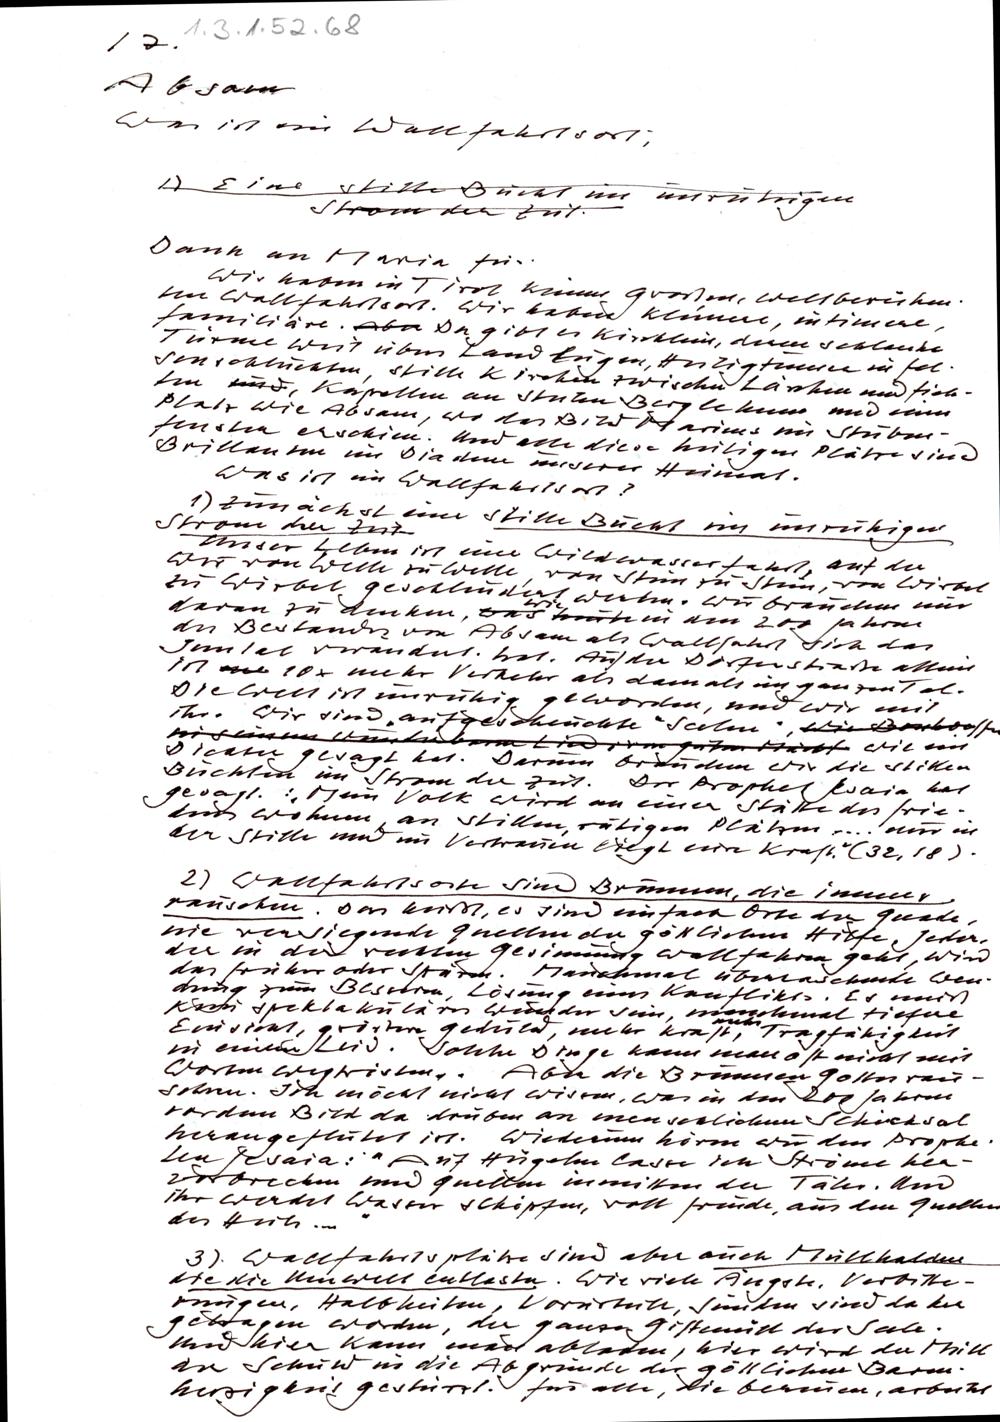 1.3.1.52.68
12.
Absam
Was ist ein Wallfahrtsort;
1) Eine stille Bucht im unruhigen
Strom der Zeit.
Dank an Maria für..
Wir haben in Tirol keinen großen, weltberühm-
ten Wallfahrtsort. Wir haben kleinere, intimere,
familiäre. Aber Da gibt es Kirchlein, deren schlanke
Türme weit übers Land lugen, Heiligtümer in Fel-
senschluchten, stille Kirchen zwischen Lärchen und Fich-
ten und, Kapellen an steilen Berglehnen und einen
Platz wie Absam, wo das Bild Mariens im Stuben-
fenster erschien. Und alle diese heiligen Plätze sind
Brillanten im Diadem unserer Heimat.
Was ist ein Wallfahrtsort?
1) Zunächst eine stille Bucht im unruhigen
Strom der Zeit
Unser Leben ist eine Wildwasserfahrt, auf der
wir von Welle zu Welle, von Stein zu Stein, von Wirbel
zu Wirbel geschleudert werden. Wir brauchen nur
daran zu denken, wie in den 200 Jahren
des Bestandes von Absam als Wallfahrt sich das
Inntal verändert hat. Auf der Dörferstraße allein
ist 10x mehr Verkehr als damals im ganzen Tal.
Die Welt ist unruhig geworden, und wir mit
ihr. Wir sind "aufgescheuchte Seelen", wie
wie ein
Dichter gesagt hat. Darum brauchen wir die stillen
Buchten im Strom der Zeit. Der Prophet Jesaia hat
gesagt: "Mein Volk wird an einer Stätte des Frie-
dens wohnen, an stillen, ruhigen Plätzen .... nur in
der Stille und im Vertrauen liegt eure Kraft." (32,18).
2) Wallfahrtsorte sind Brunnen, die immer
rauschen. Das heißt, es sind einfach Orte der Gnade,
nie versiegende Quellen der göttlichen Hilfe. Jeder,
der in der rechten Gesinnung wallfahren geht, wird
das früher oder spüren. Manchmal überraschende Wen-
dung zum Besseren, Lösung eines Konflikts. Es muß
kein spektakuläres Wunder sein, manchmal tiefere
Einsicht, größere Geduld, mehr Kraft, mehr Tragfähigkeit
in einem Leid. Solche Dinge kann man oft nicht mit
Worten wegwischen. Aber die Brunnen Gottes rau-
schen. Ich möcht nicht wissen, was in den 200 Jahren
vor dem Bild da drüben an menschlichem Schicksal
herangeflutet ist. Wiederum hören wir den Prophe-
ten Jesaia: "Auf Hügeln lasse ich Ströme her-
vorbrechen und Quellen inmitten der Täler. Und
ihr werdet Wasser schöpfen, voll Freude, aus den Quellen
des Heils ...."
3). Wallfahrtsplätze sind aber auch Müllhalden
die die Umwelt entlasten. Wie viele Ängste, Verbitte-
rungen, Halbheiten, Vorurteile, Sünden sind da her
getragen worden, der ganze Giftmüll der Seele.
Und hier kann man abladen, hier wird der Müll
der Schuld in die Abgründe der göttlichen Barm-
herzigkeit gestürzt. Für alle, die bereuen, arbeitet